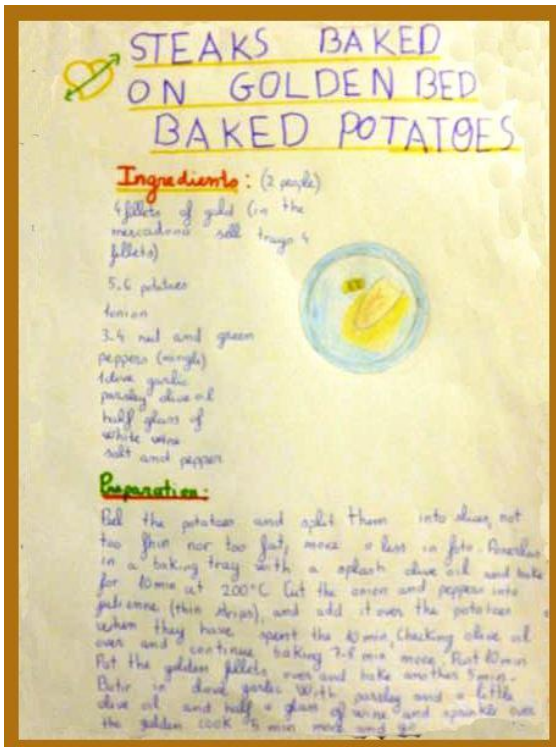 STEAKS BAKED
ON GOLDEN BED
BAKED POTATOES
Ingredients: (2 people)
4 fillets of gold (in the
mercadona sell trays 4
fillets)
5-6 potatoes
1 onion
3-4 red and green
peppers (mingle)
1 clove garlic
parsley olive oil
half glass of
white wine
salt and pepper
Preparation:
Peel the potatoes and split them into slices, not
too thin nor too fat, more o less in foto.
in a baking tray with a splash olive oil and bake
for 10 min at 200°C Cut the onion and peppers into
julienne (thin strips), and add it over the potatoes
when they have spent the 10 min, Checking olive oil
over and continue baking 7-8 min more. Past 10 min
Put the golden fillets over and bake another 5 min.
in clove garlic with parsley and a little
olive oil and half a glass of wine and sprinkle over
the golden cook 5 min more and go